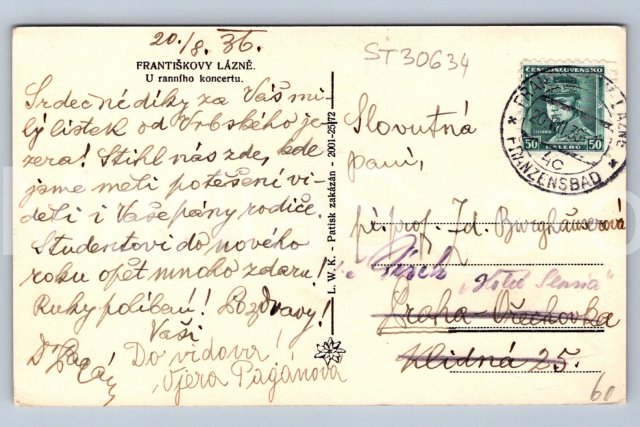 20./8. 36.
ST30634
FRANTIŠKOVY LÁZNĚ.
U ranního koncertu.
Srdečné díky za Váš mi-
lý lístek od Vrbského je-
zera! Stihl nás zde, kde
jsme měli potěšení vi-
děti i Vaše pány rodiče.
Studentovi do nového
roku opět mnoho zdaru!
Ruky políbení! Pozdravy!
Vaši
Do vidova!
Vjera Pagánová
L. W. K. - Patisk zakázán - 2001-2572
ČESKOSLOVENSKO
50 HALÉŘŮ 50
FRANZENSBAD
4C
Slovutná
paní,
pí. prof. Id. Burghauserová
Písek
Praha-Ořechovka
Klidná 25.
60